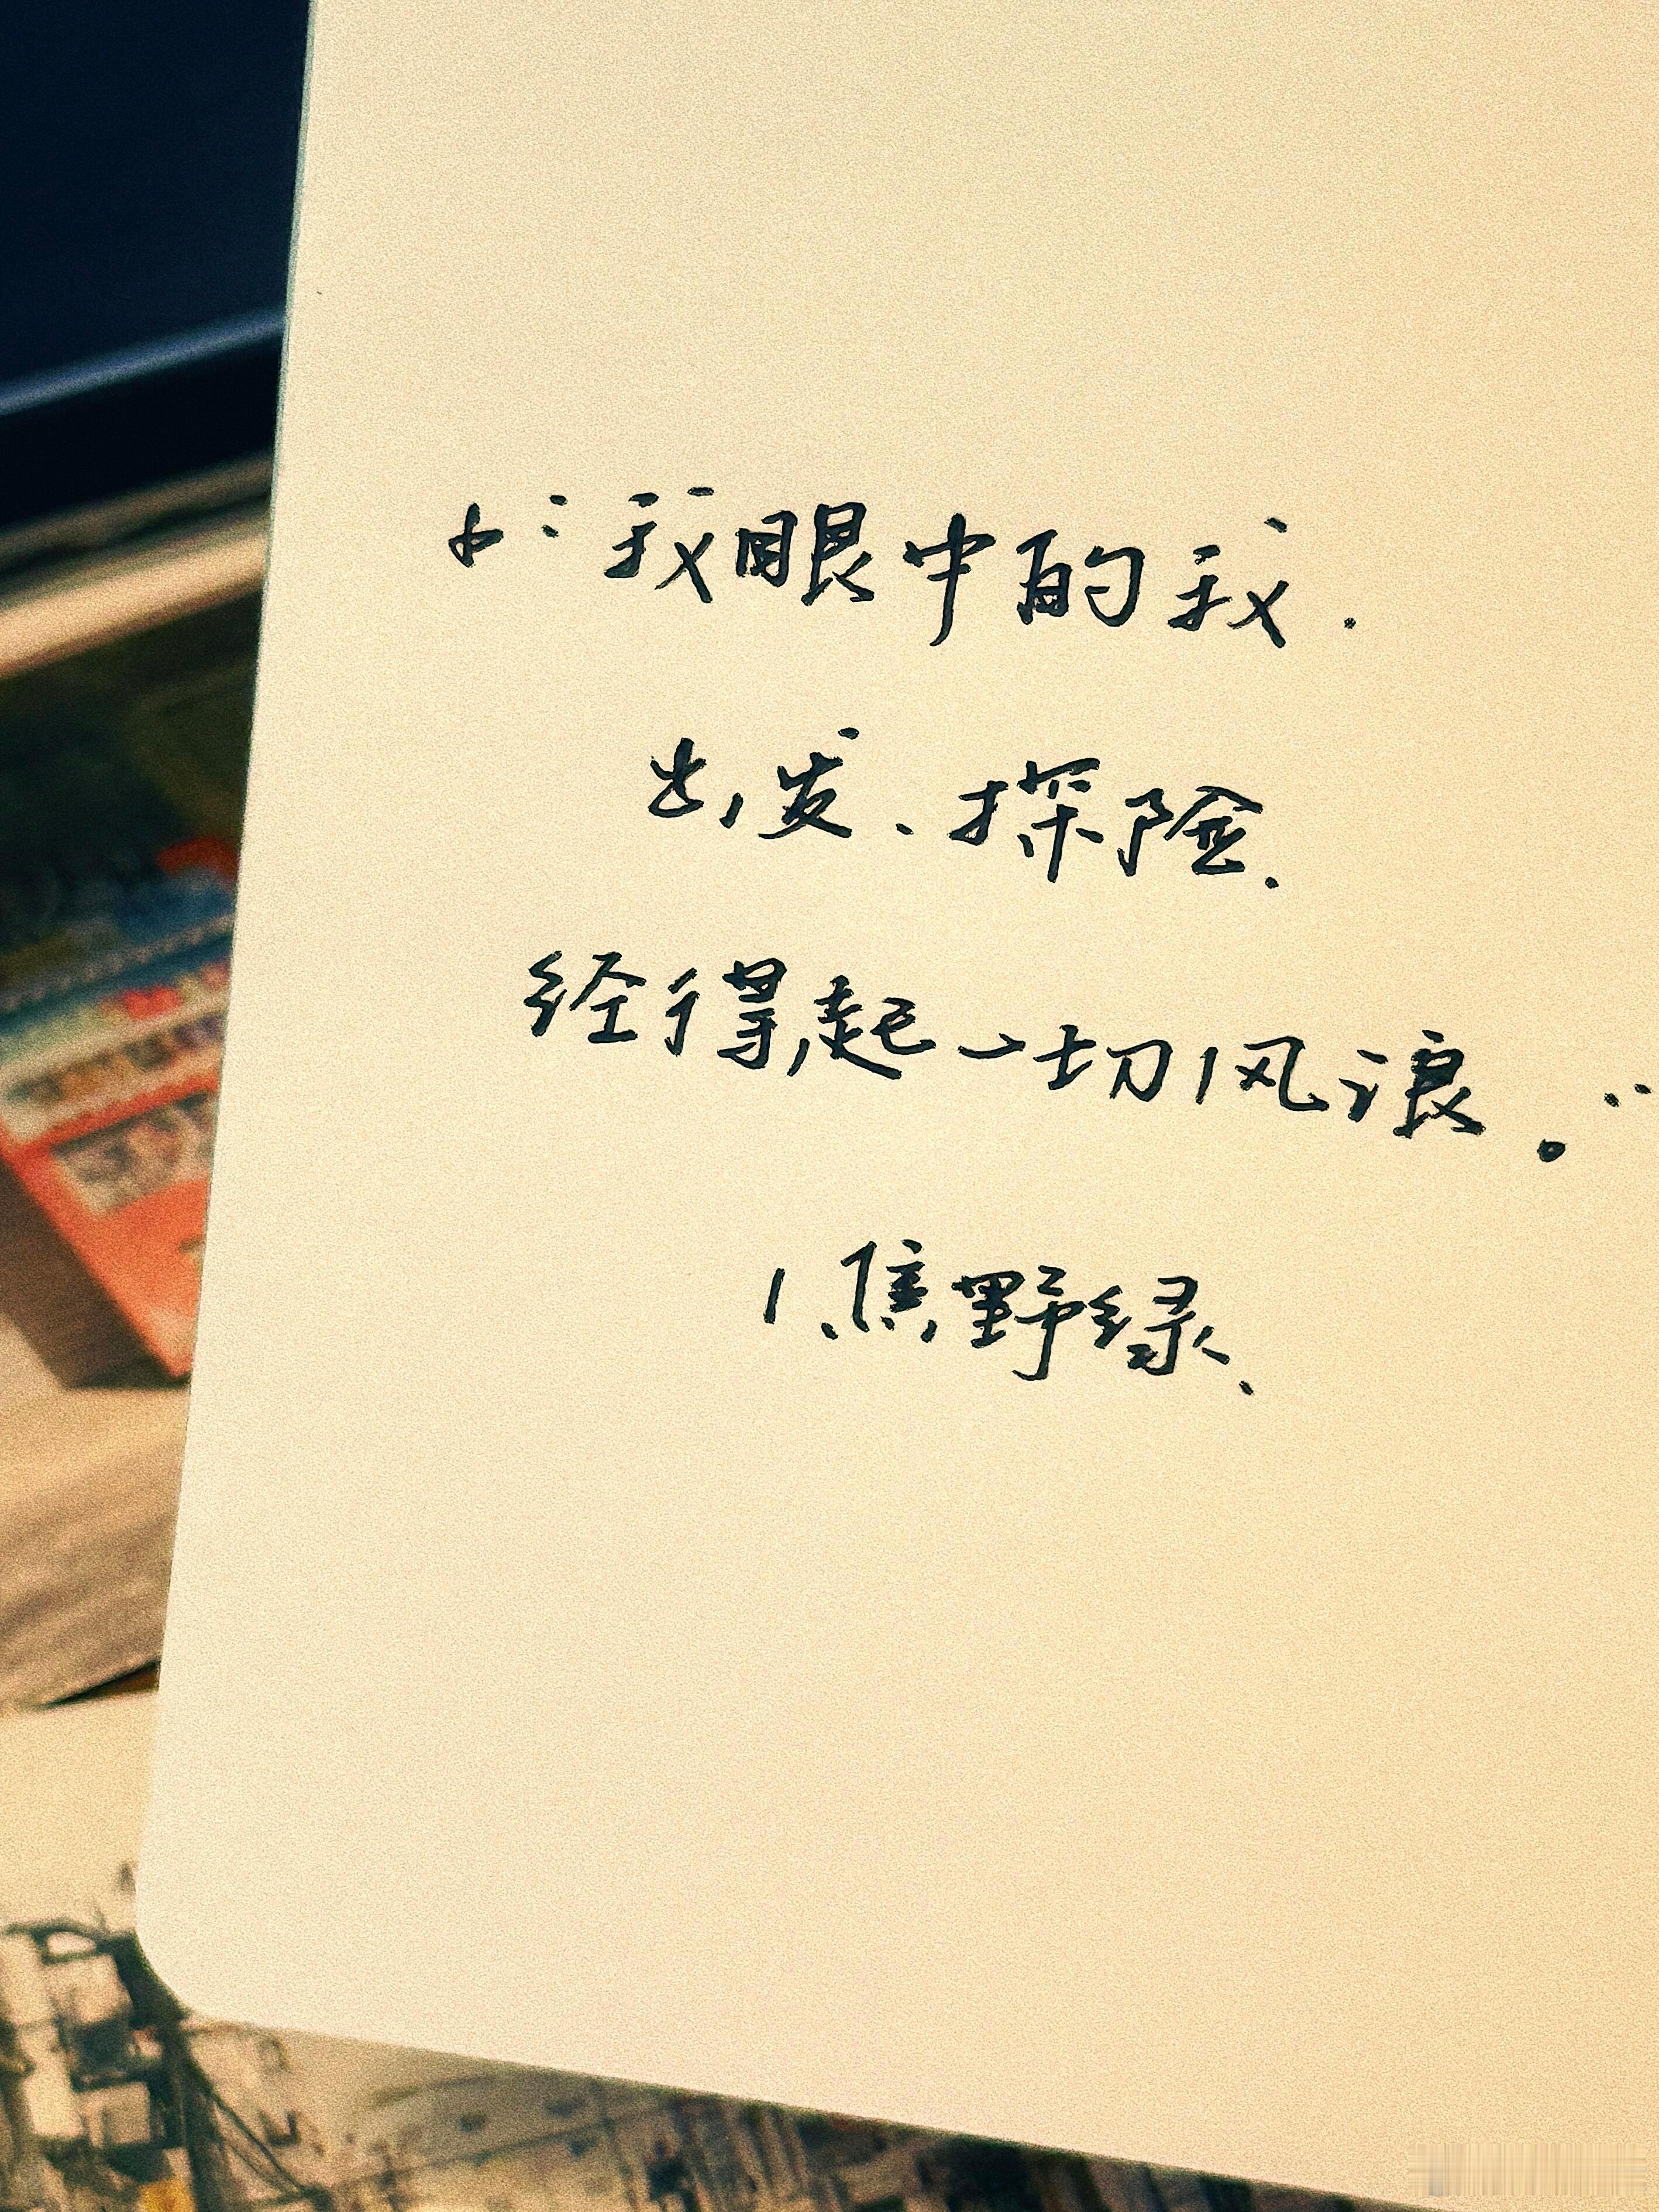 “我眼中的我.
出发、探险.
经得起一切风浪。”
野绿、